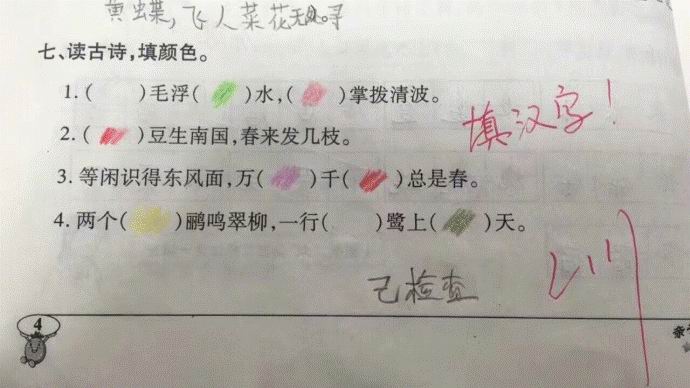 黄蝶，飞人菜花无处寻
七、读古诗，填颜色。
1.(　)毛浮(　)水，(　)掌拨清波。
2.(　)豆生南国，春来发几枝。
填汉字！
3.等闲识得东风面，万(　)千(　)总是春。
4.两个(　)鹂鸣翠柳，一行(　)鹭上(　)天。
已检查
4
亲